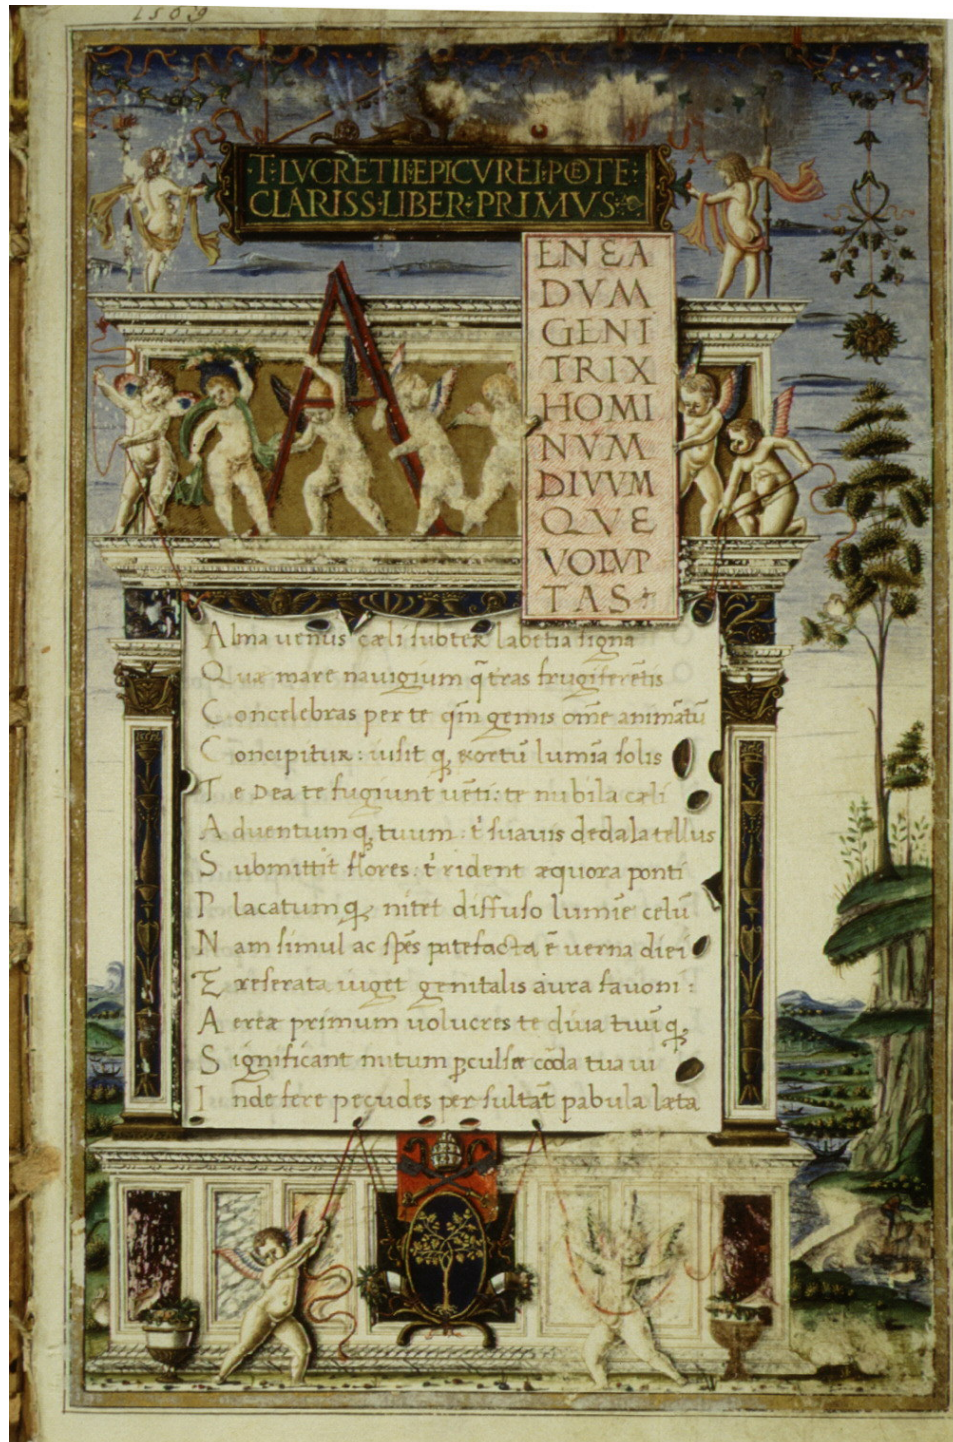 1569
·T·LVCRETII·EPICVREI·POETE·
CLARISS·LIBER·PRIMVS·
A
ENEA
DVM
GENI
TRIX
HOMI
NVM
DIVVM
QVE
VOLVP
TAS
Alma uenus cæli subter labētia signa
Quæ mare nauigium q̄ tras frugiferētis
Concelebras per te qm̄ genus om̄e animātū
Concipitur: uisit q̨ exortū lumīa solis
Te Dea te fugiunt uēti: te nubila cæli
Aduentum q̨ tuum: t' suauis dedala tellus
Submittit flores: t' rident æquora ponti
Placatum q̨ nitet diffuso lumīe celū
Nam simul ac spēs patefacta ē uerna diei
Exreserata uiget genitalis aura fauoni:
Aereæ primum uolucres te diua tuūq̨
Significant initum p̱culsæ cōda tua ui
Inde fere pecudes per sultāt pabula læta